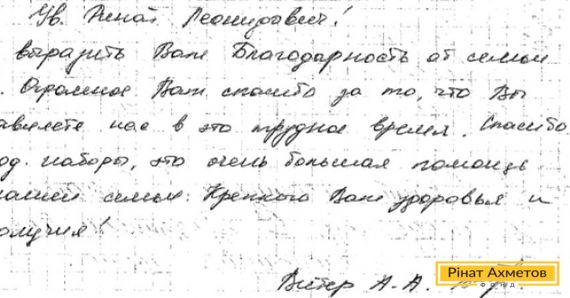 Ув. Ринат Леонидович!
выразить Вам Благодарность от семьи
. Огромное Вам спасибо за то, что Вы
авляете нас в это трудное время. Спасибо
од. наборы, это очень большая помощь
нашей семье. Крепкого Вам здоровья и
олучия!
Вітер А. А.
Рінат Ахметов
ФОНД